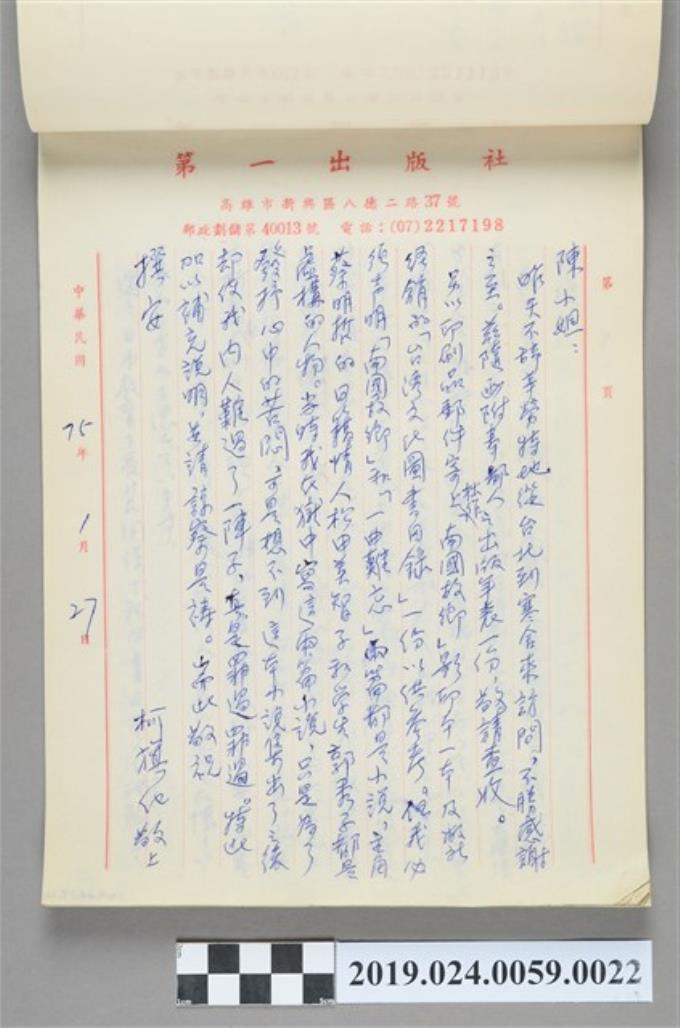 第一出版社
高雄市新興區八德二路37號
郵政劃儲第40013號 電話:(07)2217198
第 頁
陳小姐:
昨天不辞辛勞特地從台北到寒舍來訪問,不勝感謝
之至。茲隨函附寄鄙人出版年表一份,敬請查收。
另以印刷品郵件寄上「南國故鄉」影印本一本及敝社
經銷的「台湾文化圖書目錄」一份以供參考。但我必
須声明「南國故鄉」和「一曲難忘」兩篇都是小說,主角
蔡明哲的日籍情人松田美智子和学生郭秀子都是
虛構的人物。当時我在獄中寫這兩篇小説,只是為了
發抒心中的苦悶,可是想不到這本小説集出了之後
却使我內人難過了一陣子,真是罪過罪過。特此
加以補充說明,並請諒察是禱。耑此敬祝
撰安
柯旗化敬上
中華民國75年1月27日
2019.024.0059.0022